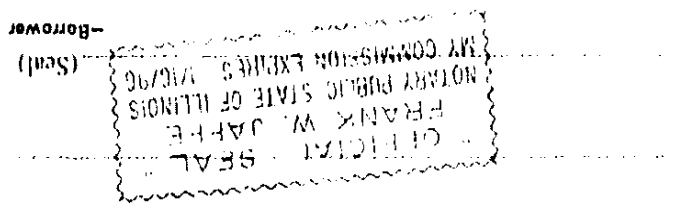 " OFFICIAL SEAL "
FRANK W. JAFFE
NOTARY PUBLIC STATE OF ILLINOIS
MY COMMISSION EXPIRES 1/16/96
(Seal)
-Borrower